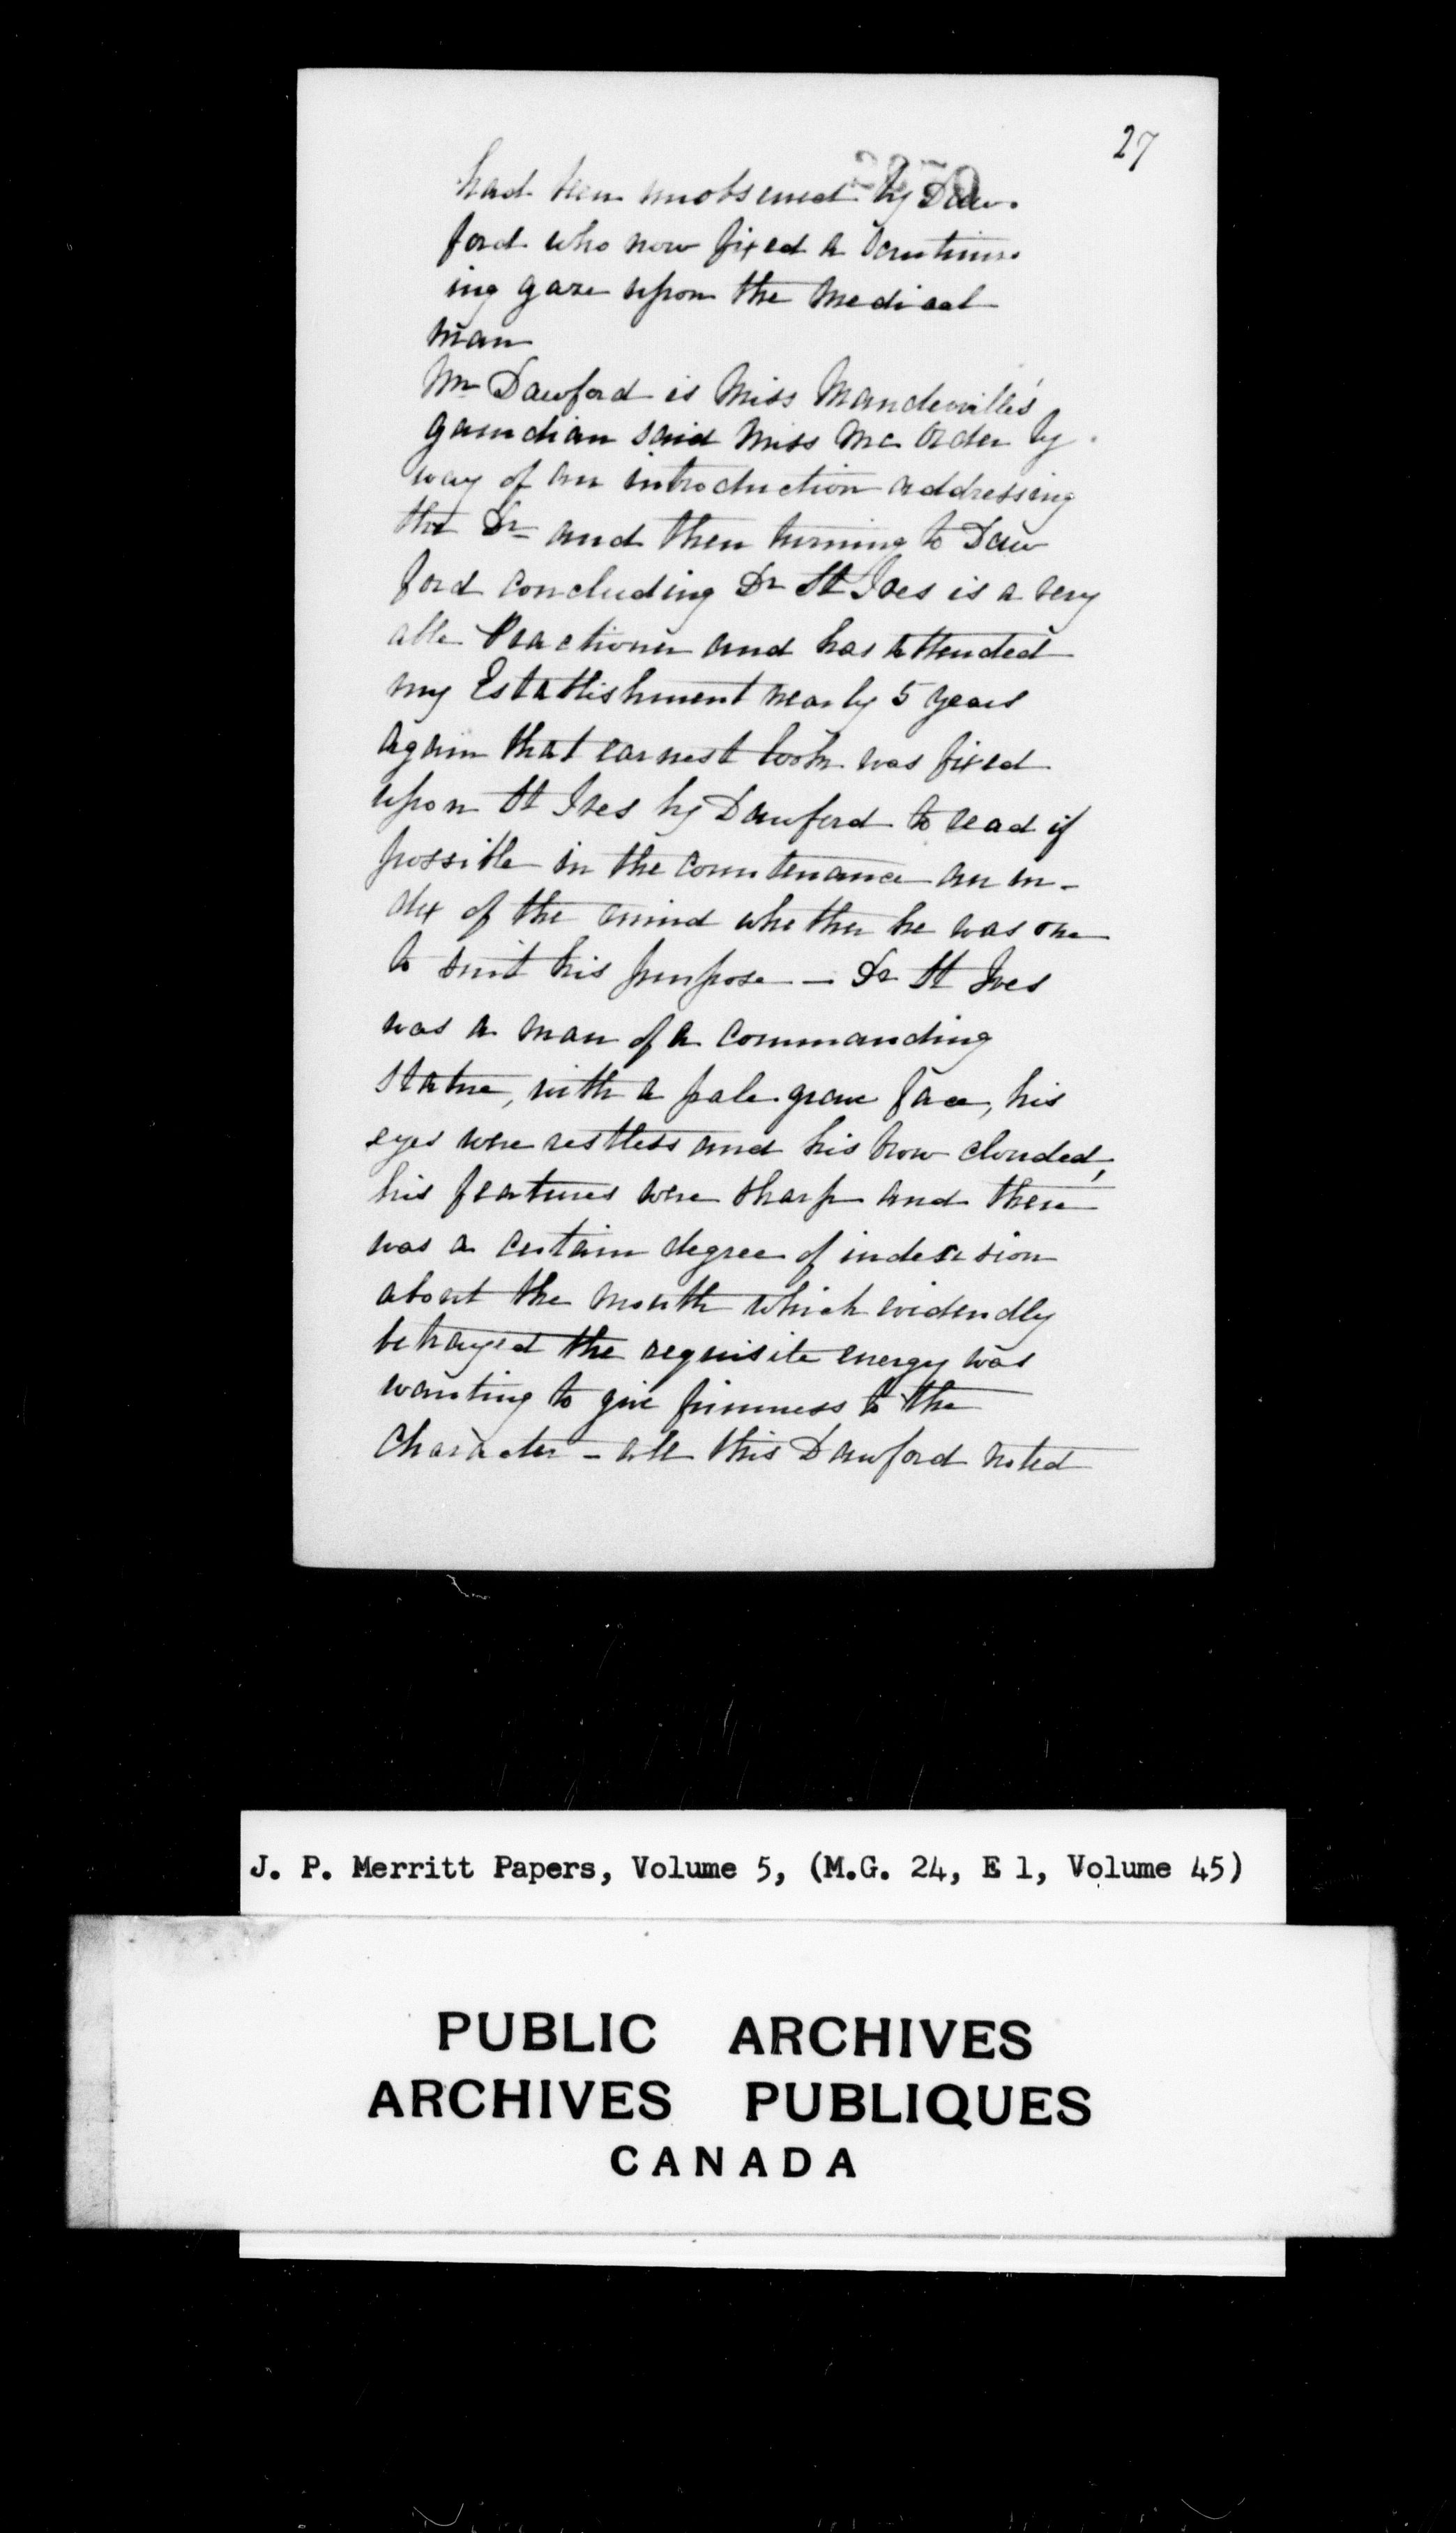 27
had been unobserved by Daw-
ford who now fixed a scrutinis-
ing gaze upon the medical
man
Mr Dawford is Miss Mandeville's
gaurdian said Miss Mc Order by
way of an introduction addressing
the Dr and then turning to Daw
ford concluding Dr St Ives is a very
able Practioner and has attended
my Establishment nearly 5 years
again that earnest look was fixed
upon St Ives by Dawford to read if
possible in the countenance an in-
dex of the mind whether he was one
to suit his purpose — Dr St Ives
was a man of a commanding
statue, with a pale grave face, his
eyes were restless and his brow clouded,
his features were sharp and there
was a certain degree of indecision
about the mouth which evidendly
betrayed the requisite energy was
wanting to give firmness to the
Character - all this Dawford noted
J. P. Merritt Papers, Volume 5, (M.G. 24, E 1, Volume 45)
PUBLIC ARCHIVES
ARCHIVES PUBLIQUES
CANADA